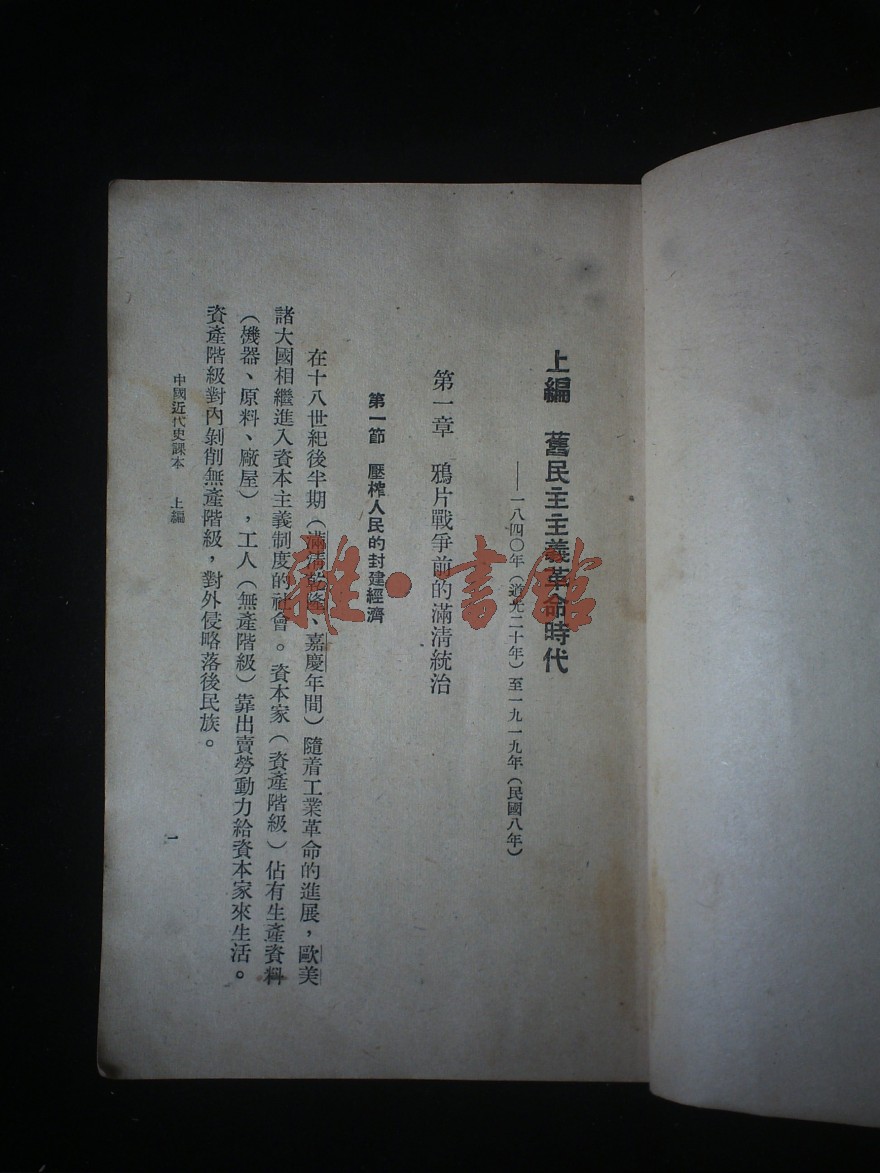 上編　舊民主主義革命時代
——一八四〇年（道光二十年）至一九一九年（民國八年）
第一章　鴉片戰爭前的滿清統治
第一節　壓榨人民的封建經濟
在十八世紀後半期（滿清乾隆、嘉慶年間）隨着工業革命的進展，歐美
諸大國相繼進入資本主義制度的社會。資本家（資產階級）佔有生產資料
（機器、原料、廠屋），工人（無產階級）靠出賣勞動力給資本家來生活。
資產階級對內剝削無產階級，對外侵略落後民族。
中國近代史課本　上編
一
雜·書館